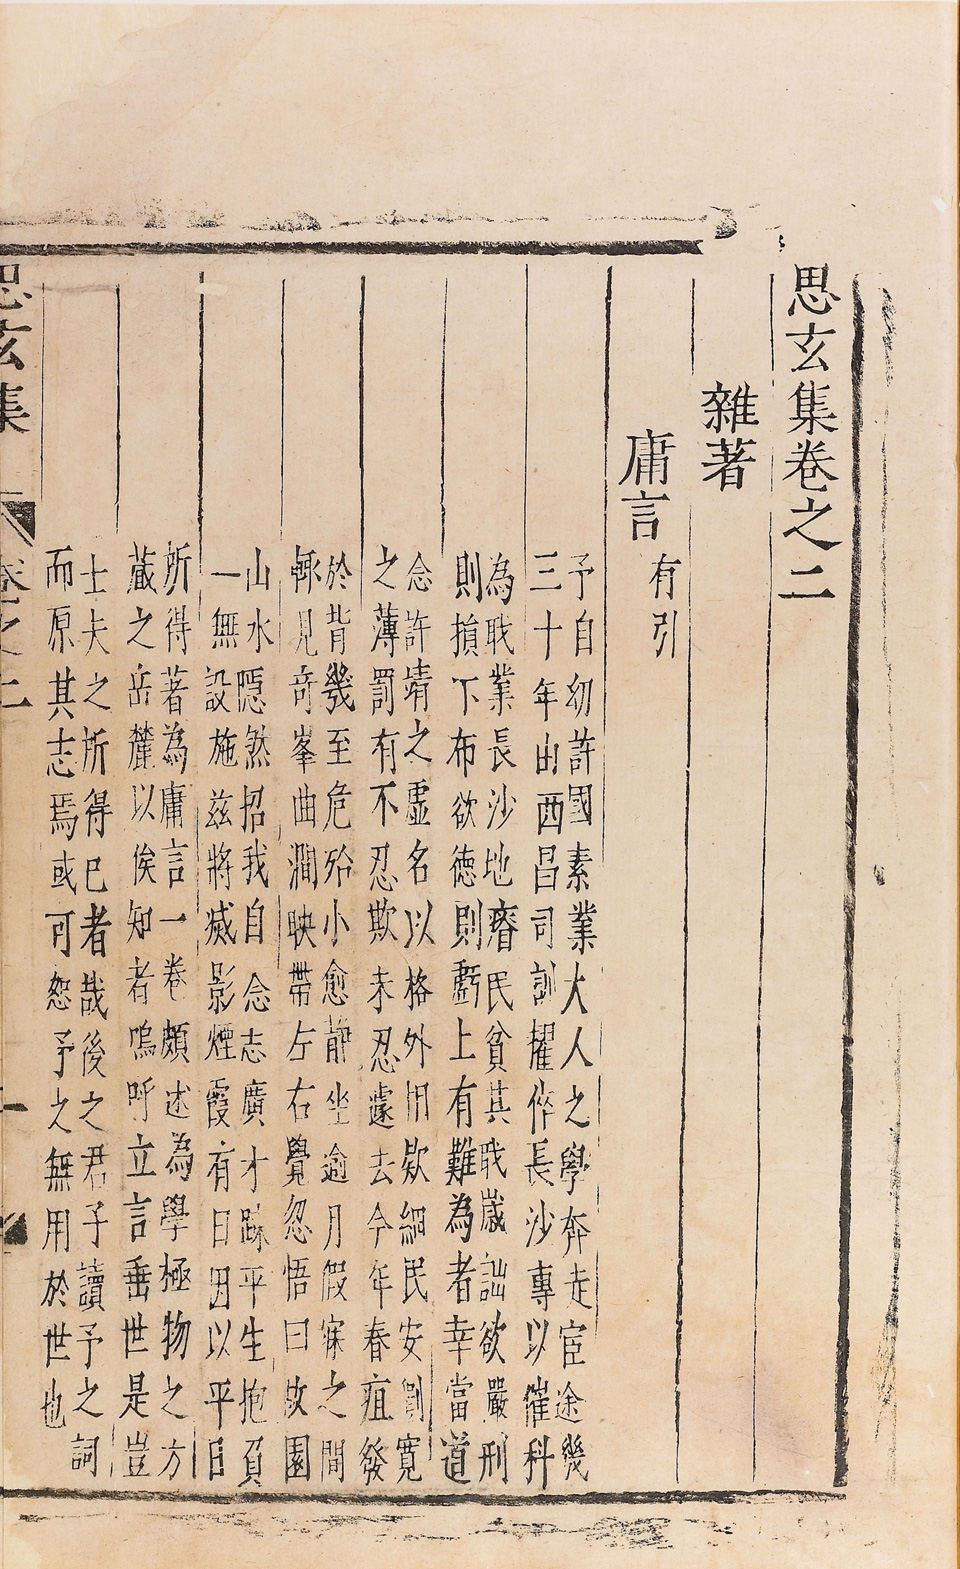 思玄集卷之二
雜著
庸言 有引
予自幼許國素業大人之學奔走宦途幾
三十年由西昌司訓擢倅長沙專以催科
為職業長沙地瘠民貧其職歲詘欲嚴刑
則損下布欲德則虧上有難為者幸當道
念許靖之虛名以格外相欵細民安劉寬
之薄罰有不忍欺未忍遽去今年春疽發
於背幾至危殆小愈靜坐逾月假寐之間
輒見奇峯曲澗映帶左右覺忽悟曰故園
山水隱然招我自念志廣才踈平生抱負
一無設施茲將滅影煙霞有日因以平日
所得著為庸言一卷頗述為學極物之方
藏之岳麓以俟知者嗚呼立言垂世是豈
士夫之所得已者哉後之君子讀予之詞
而原其志焉或可恕予之無用於世也
思玄集 卷之二 一